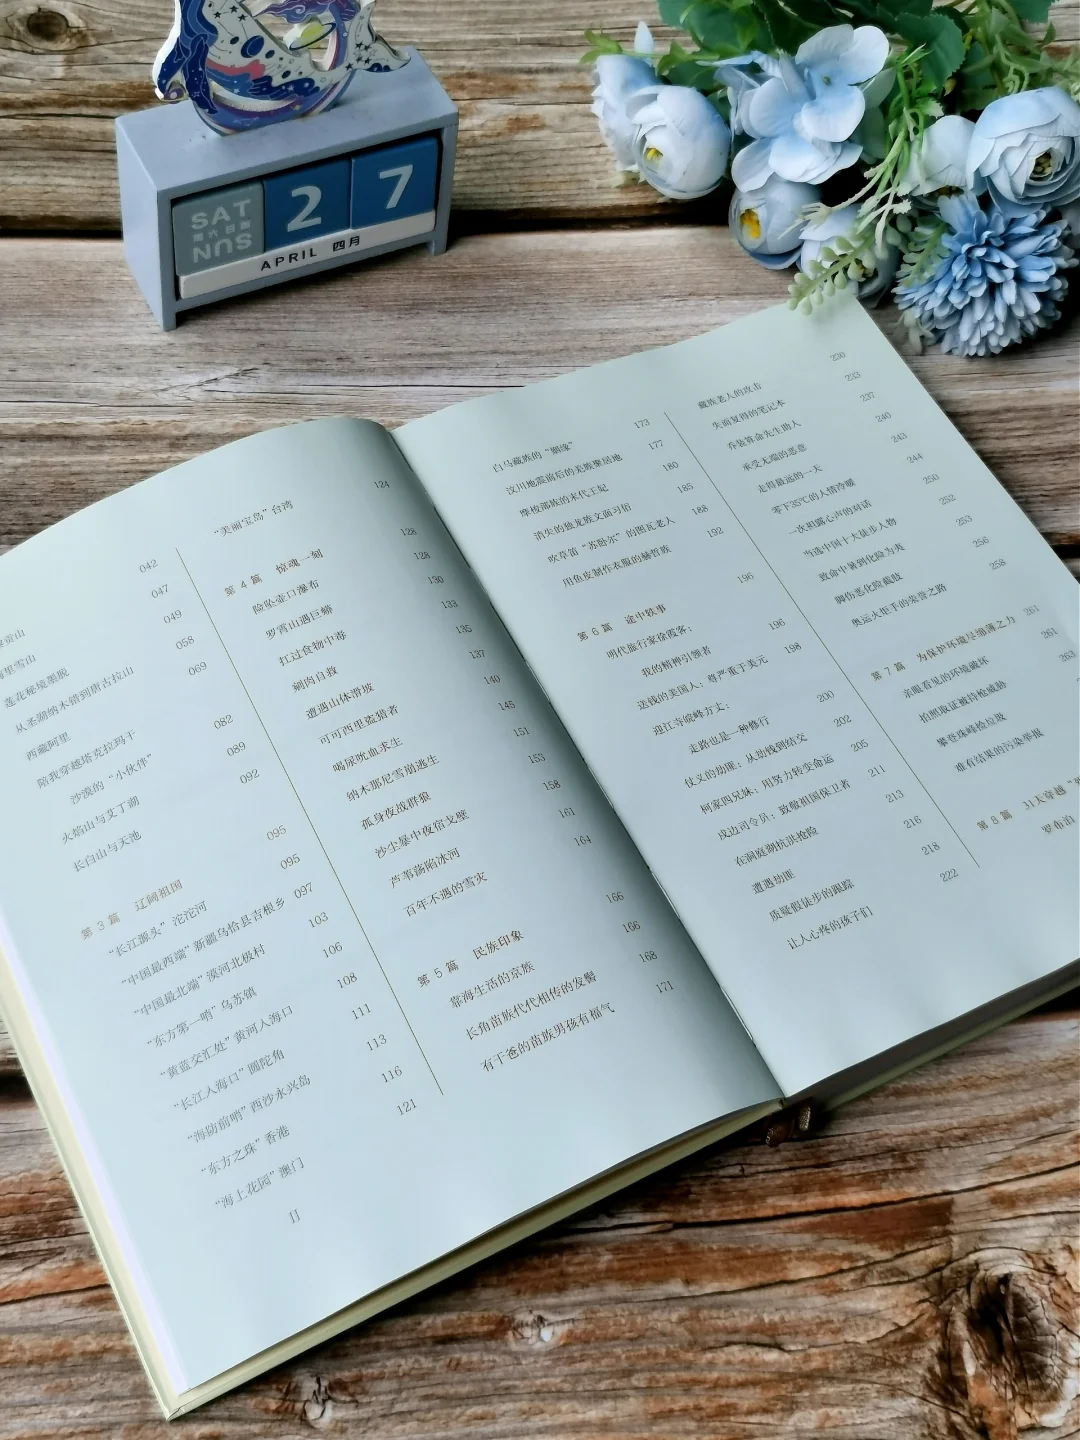 SAT 2 7
星期六日
SUN
APRIL 四月
贡山 042
里雪山 047
莲花秘境墨脱 049
从圣湖纳木错到唐古拉山 058
西藏阿里 069
陪我穿越塔克拉玛干
沙漠的“小伙伴” 082
火焰山与艾丁湖 089
长白山与天池 092
第 3 篇 辽阔祖国 095
“长江源头”沱沱河 095
“中国最西端”新疆乌恰县吉根乡 097
“中国最北端”漠河北极村 103
“东方第一哨”乌苏镇 106
“黄蓝交汇处”黄河入海口 108
“长江入海口”圆陀角 111
“海防前哨”西沙永兴岛 113
“东方之珠”香港 116
“海上花园”澳门 121
II
“美丽宝岛”台湾 124
第 4 篇 惊魂一刻 128
险坠壶口瀑布 128
罗霄山遇巨蟒 130
扛过食物中毒 133
剜肉自救 135
遭遇山体滑坡 137
可可西里盗猎者 140
喝尿吮血求生 145
纳木那尼雪崩逃生 151
孤身夜战群狼 153
沙尘暴中夜宿戈壁 158
芦苇荡陷冰河 161
百年不遇的雪灾 164
第 5 篇 民族印象 166
靠海生活的京族 166
长角苗族代代相传的发髻 168
有干爸的苗族男孩有福气 171
白马藏族的“姻缘” 173
汶川地震前后的羌族聚居地 177
摩梭部族的末代王妃 180
消失的独龙族文面习俗 185
吹草笛“苏尔”的图瓦老人 188
用鱼皮制作衣服的赫哲族 192
第 6 篇 途中轶事 196
明代旅行家徐霞客：
我的精神引领者 196
送钱的美国人：尊严重于美元 198
迎江寺皖峰方丈：
走路也是一种修行 200
仗义的劫匪：从劫钱到结交 202
柯家四兄妹：用努力转变命运 205
戍边司令员：致敬祖国保卫者 211
在洞庭湖抗洪抢险 213
遭遇劫匪 216
质疑假徒步的跟踪 218
让人心疼的孩子们 222
藏族老人的攻击 230
失而复得的笔记本 233
乔装算命先生助人 237
承受无端的恶意 240
走得最远的一天 243
零下35℃的人情冷暖 244
一次袒露心声的对话 250
当选中国十大徒步人物 252
致命中暑到化险为夷 253
脚伤恶化险截肢 256
奥运火炬手的荣誉之路 258
第 7 篇 为保护环境尽绵薄之力 261
亲眼看见的环境破坏 261
拍照取证被持枪威胁 263
攀登珠峰捡垃圾
难有结果的污染举报
第 8 篇 31天穿越“
罗布泊